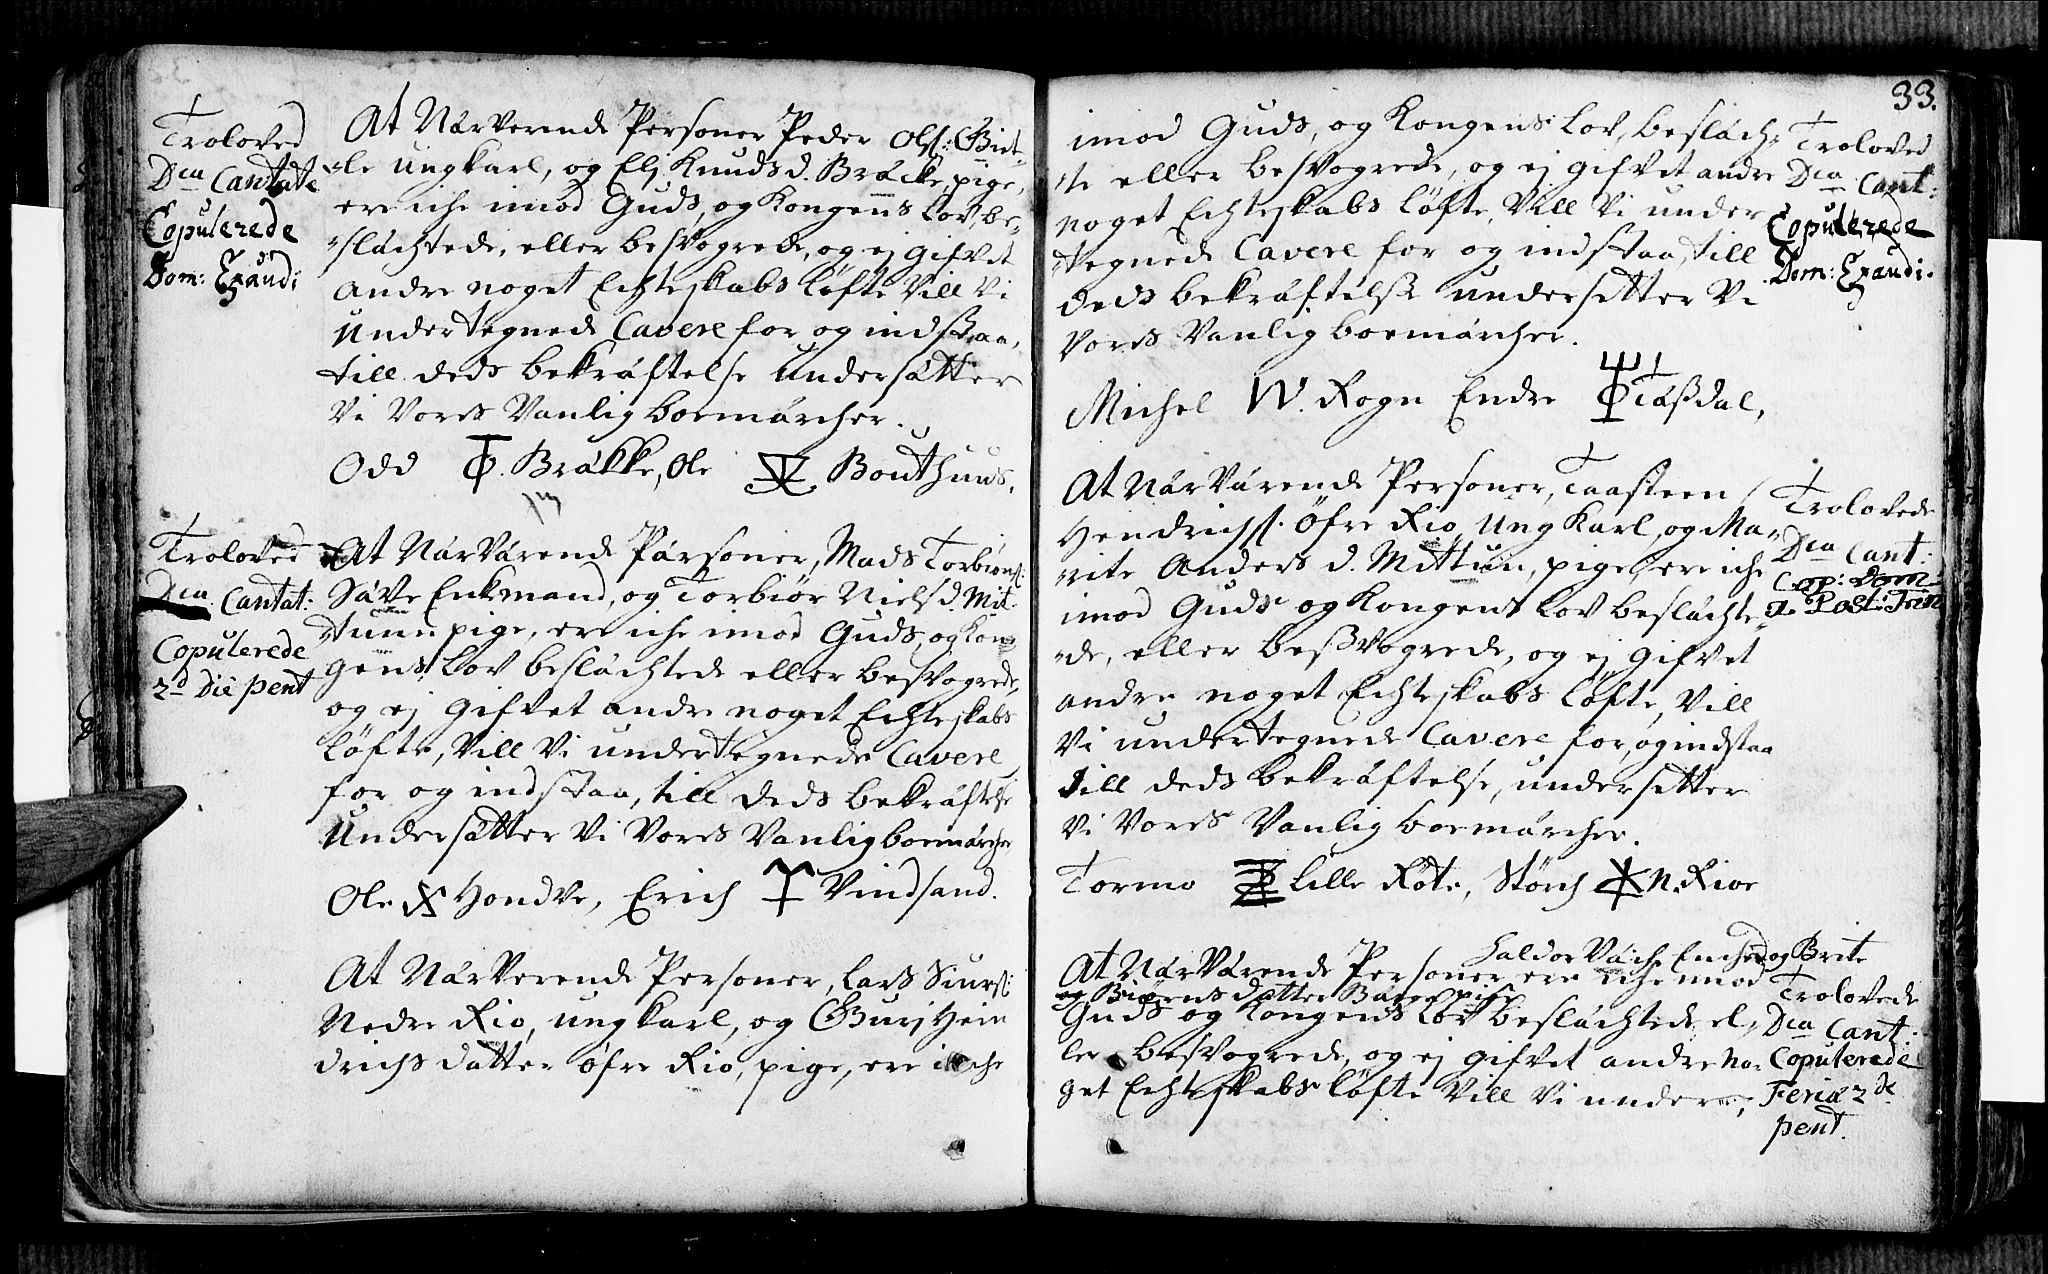 Troloved
Dca Cantate
Copulerede
Dom: Exaudi
At Nárverende Personer Peder Ols: Biet
le ungkarl, og Elj Knudsd. Brácke, pige,
ere iche imod Guds, og Kongens Lov, be-
slágtede, eller besvogrede, og ej gifvet
andre noget Echteskabs Løfte Vill Vi
Undertegnede Cavere for og indstaa,
till deds bekráftelse Undersátter
Vi Vores Vanlig boemárcher.
Odd Brákke, Ole Bouthuus,
Troloved
Dca Cantat:
Copulerede
2d Die pent
At Nárvárende Pársoner, Mads Torbiøns:
Sáve Enkemand, og Torbiør Nielsd. Mit
tunn pige, ere iche imod Guds, og Kon-
gens Lov beslágtede eller besvogrede,
og ej gifvet andre noget Echteskabs
Løfte, Vill Vi undertegnede Cavere
for og indstaa, till deds bekráftelse
Undersátter Vi Vores Vanlig boemárcher
Ole Hondve, Erich Vindsand.
At Nárverende Personer, Lars Siurs:
Nedre Rio, ungkarl, og Gurj Hein
drichs datter øfre Rio, pige, ere iche
33.
imod Guds, og Kongens Lov, beslách-
te eller besvogrede, og ej gifvet andre
noget Echteskabs Løfte, Vill Vi under
tegnede Cavere for og indstaa, till
deds bekráftelse undersetter Vi
Vores Vanlig boemárcher.
Troloved
Dca Cant:
Copulerede
Dom: Exaudi.
Michel W. Rogn Endre Táßdal,
At Nárvárende Personer, Taasteen
Hendrichs. Øfre Rio, Ung Karl, og Ma-
rite Anders d. Mittun, pige, ere iche
imod Guds og Kongens Lov beslágte-
de, eller besvogrede, og ej gifvet
andre noget Echteskabs Løfte, Vill
Vi undertegnede Cavere for, og indstaa
till deds bekráftelse, undersetter
Vi Vores Vanlig boemárcher.
Trolovede
Dca Cant:
Cop: Dom
1. Post: Trin
Tormo Lille Røte, Størch N. Rioe
Haldor og Brite
At Nárvárende Personer ere iche imod
og Biørens datter pige
Guds og Kongens Lov beslágtede el,
ler besvogrede, og ej gifvet andre no-
get Echteskabs Løfte Vill Vi under
Trolovede
Dca Cant:
Copulerede
Feria 2de
pent.